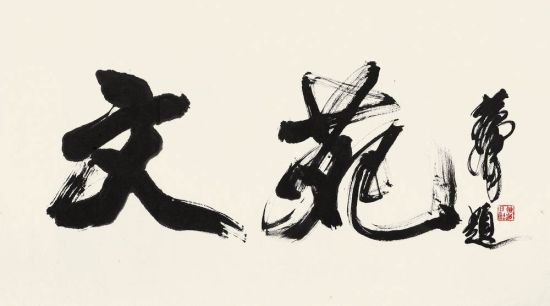 文苑
題